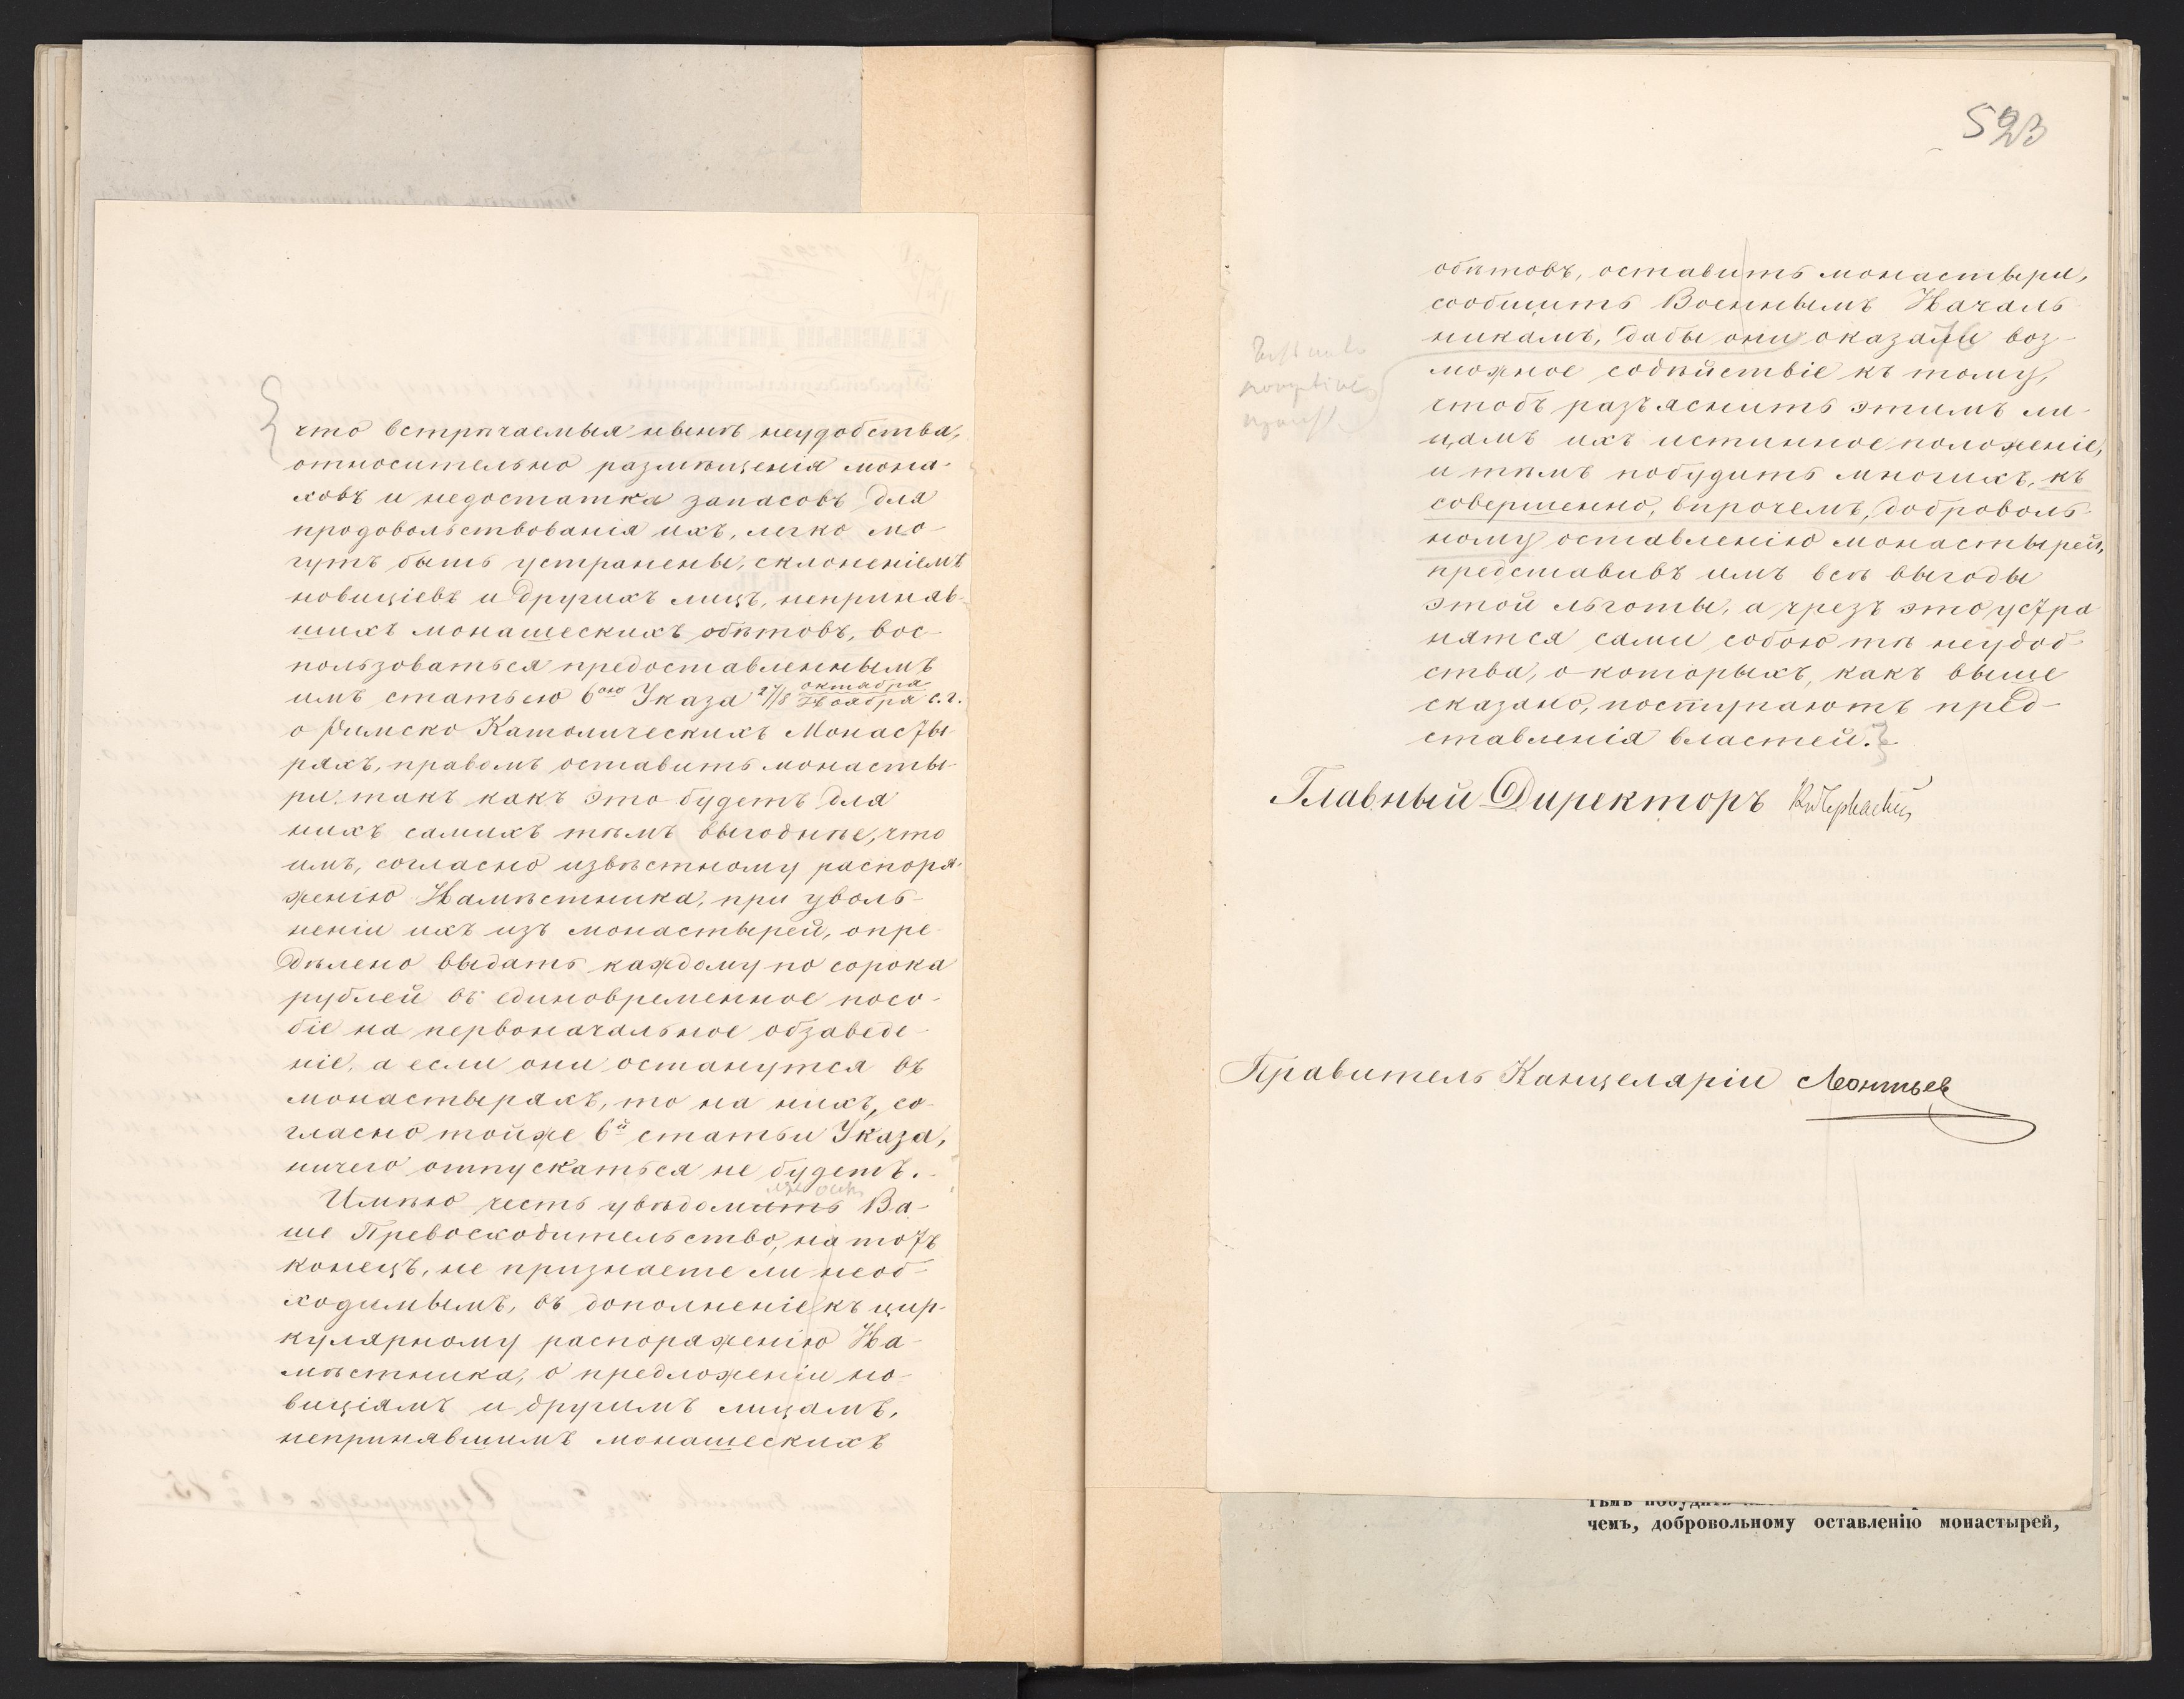 что встрѣчаемыя нынѣ неудобства,
относительно размѣщенія мона-
ховъ и недостатка запасовъ для
продовольствованія ихъ, легко мо-
гутъ быть устранены, склоненіемъ
новиціевъ и другихъ лицъ, неприняв-
шихъ монашескихъ обѣтовъ, вос-
пользоваться предоставленнымъ
имъ статьею 6ою Указа 27/8 октября/Ноября с.г.
о Римско Католическихъ Монасты-
ряхъ, правомъ оставить монасты-
ри, такъ какъ это будетъ для
нихъ самихъ тѣмъ выгоднѣе, что
имъ, согласно извѣстному распоря-
женію Намѣстника, при уволь-
неніи ихъ изъ монастырей, опре-
дѣлено выдать каждому по сорока
рублей въ единовременное посо-
біе на первоначальное обзаведе-
ніе, а если они останутся въ
монастыряхъ, то на нихъ, со-
гласно тойже 6й статьи Указа,
ничего отпускаться не будетъ.
Имѣю честь увѣдомить Ва-
ше Превосходительство, на тотъ
конецъ, не признаете ли необ-
ходимымъ, въ дополненіе къ цир-
кулярному распоряженію На-
мѣстника, о предложеніи но-
виціямъ и другимъ лицамъ,
непринявшимъ монашескихъ
523
обѣтовъ, оставить монастыри,
сообщить Военнымъ Началь-
никамъ, дабы они оказали воз-
можное содѣйствіе къ тому,
чтобъ разъяснить этимъ ли-
цамъ ихъ истинное положеніе,
и тѣмъ побудить многихъ, къ
совершенно, впрочемъ, доброволь-
ному оставленію монастырей,
представивъ имъ всѣ выгоды
этой льготы, а чрезъ это устра-
нятся сами собою тѣ неудоб-
ства, о которыхъ, какъ выше
сказано, поступаютъ пред-
ставленія властей.
Главный Директоръ
Правитель Канцеляріи Леонтьев
чемъ, добровольному оставленію монастырей,